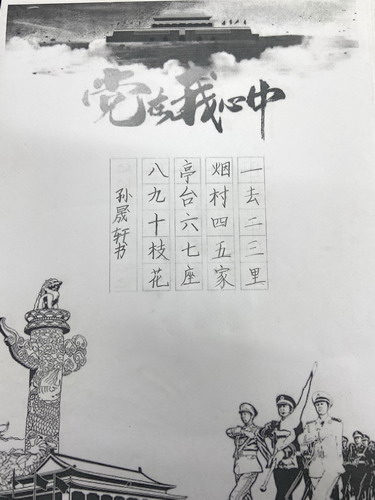 党在我心中
一去二三里
烟村四五家
亭台六七座
八九十枝花
孙晟轩书